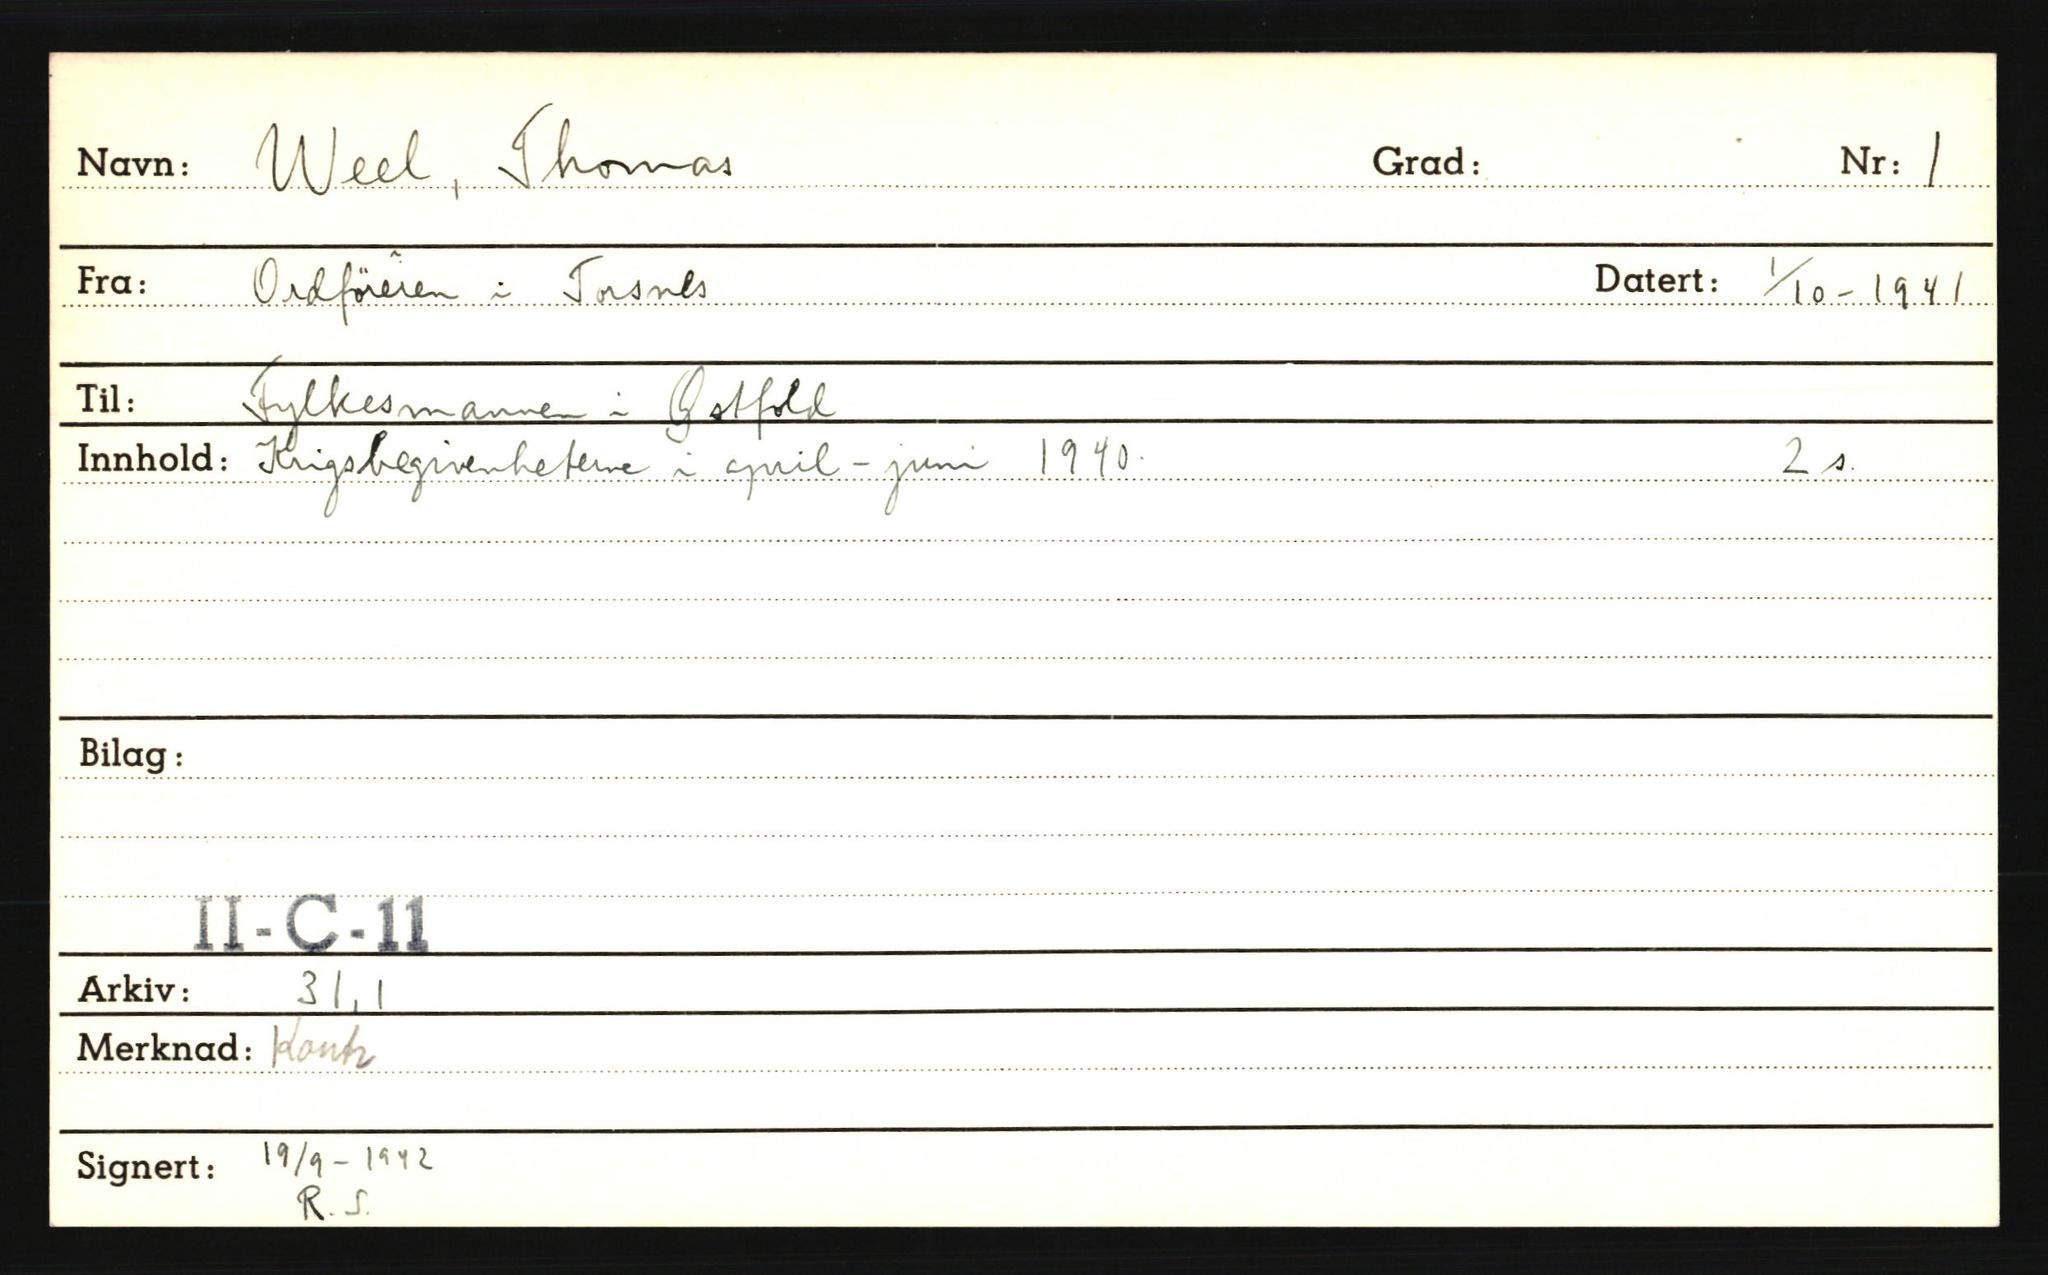 Navn: Weel, Thomas Grad: Nr: 1
Fra: Ordföreren i Torsnes Datert: 1/10-1941
Til: Fylkesmannen i Østfold
Innhold: Krigsbegivenhetene i april - juni 1940. 2 s.
Bilag:
II-C-11
Arkiv: 31,1
Merknad:
Signert: 19/9-1942
R. S.